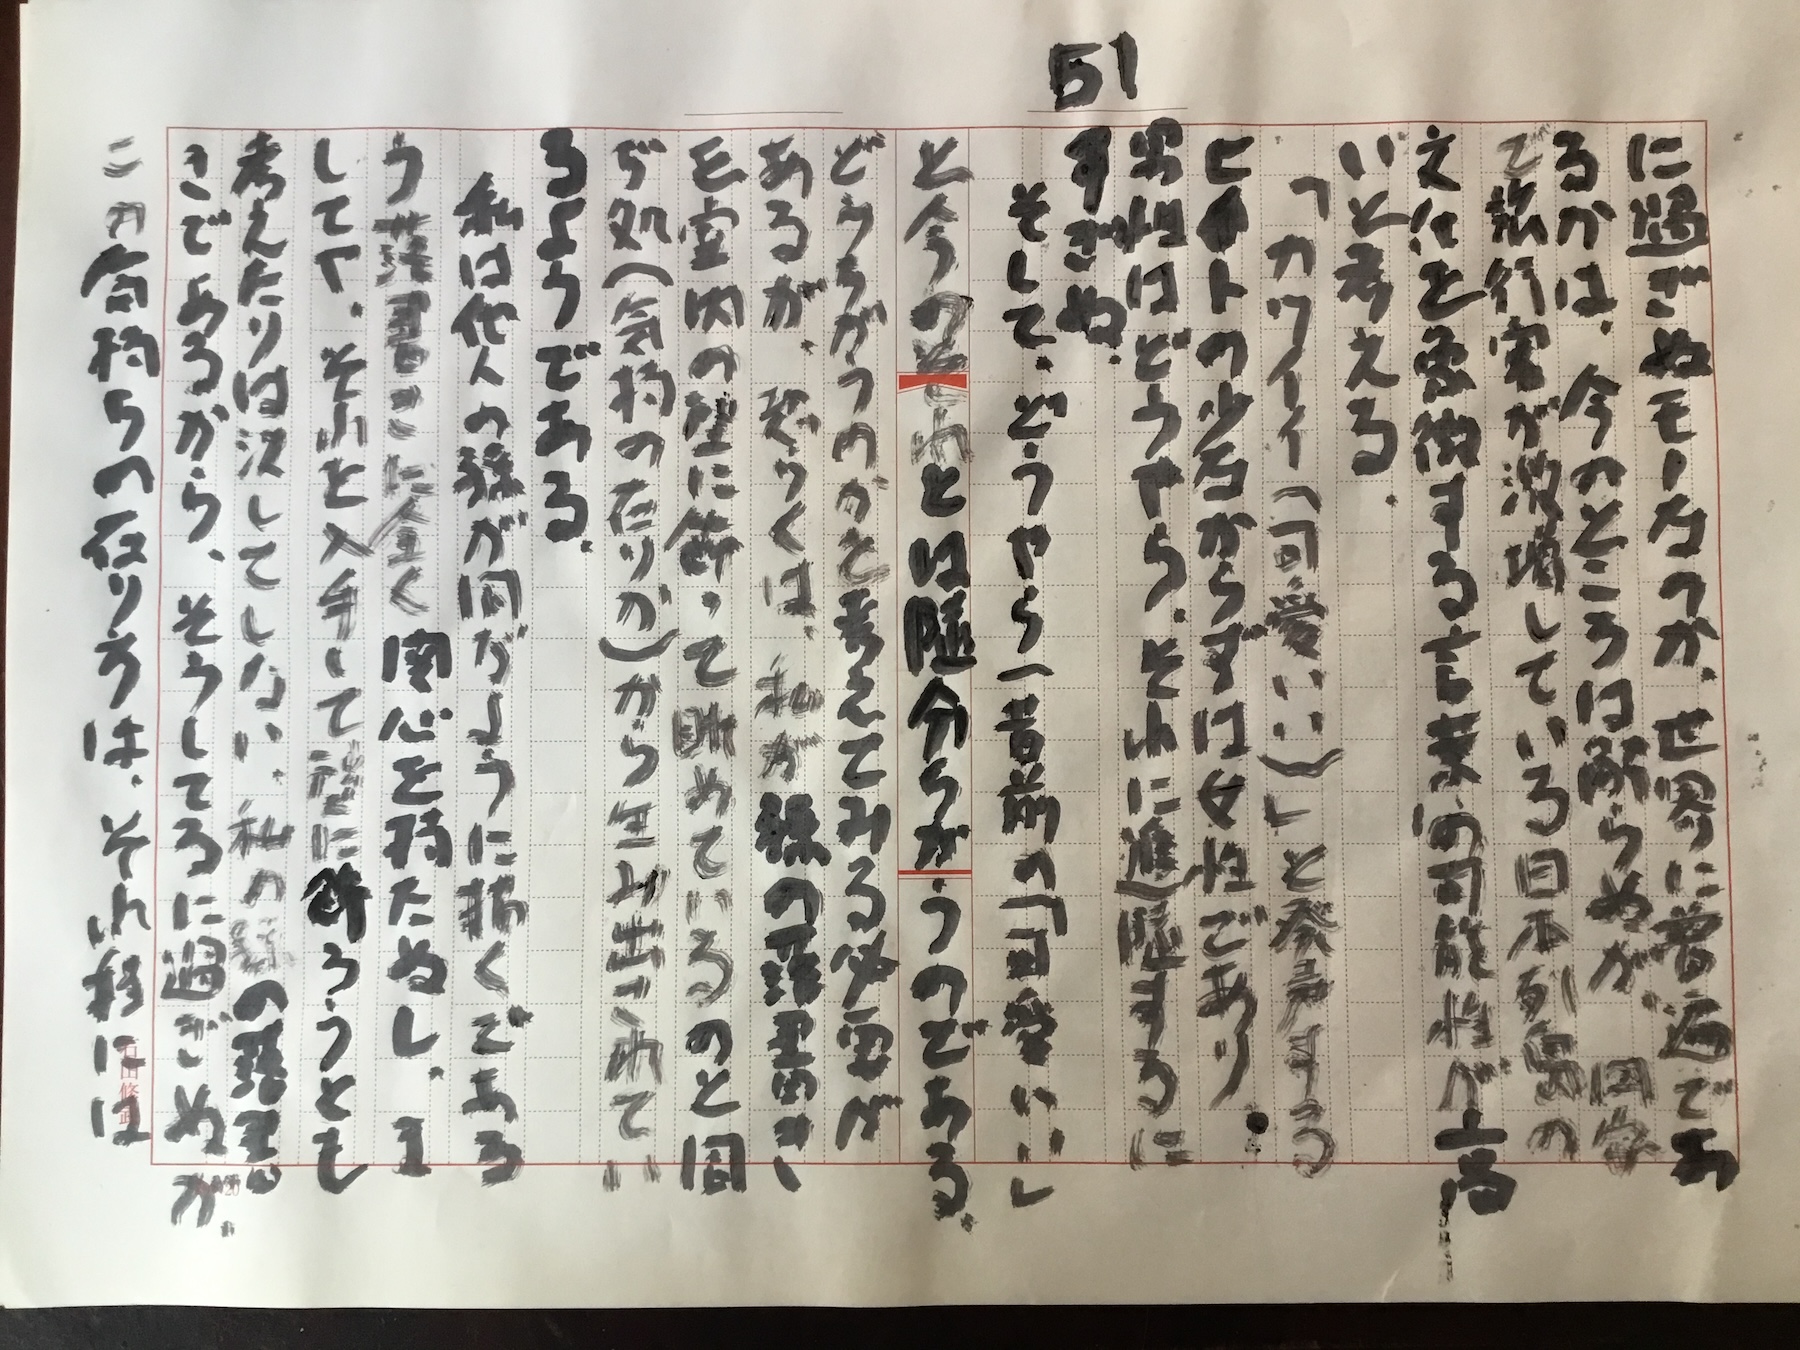 51
に過ぎぬモノなのか、世界に普遍であ
るかは、今のところは解らぬが、国家
で旅行客が激増している日本列島の
文化を象徴する言葉の可能性が高
いと考える。
「カワイイ(可愛いい)」と発声する
ヒトの少なからずは女性であり、
男性はどうやら、それに進随するに
すぎぬ。
そして、どうやら一昔前の「可愛いい」
と今のそれとは随分ちがうのである。
どうちがうのかと考えてみる必要が
あるが、恐らくは、私が孫の落書き
を室内の壁に飾って眺めているのと同
ぢ処(気持の在りか)から生み出されて い
るようである。
私は他人の孫が同ぢように描くであ る
う落書きに全く関心を持たぬし、ま
してや、それを入手して壁に飾ろうとも
考えたりは決してしない、私の孫の落書
きであるから、そうしてるに過ぎぬが、
この気持ちの在り方は、それ程には
石田修政